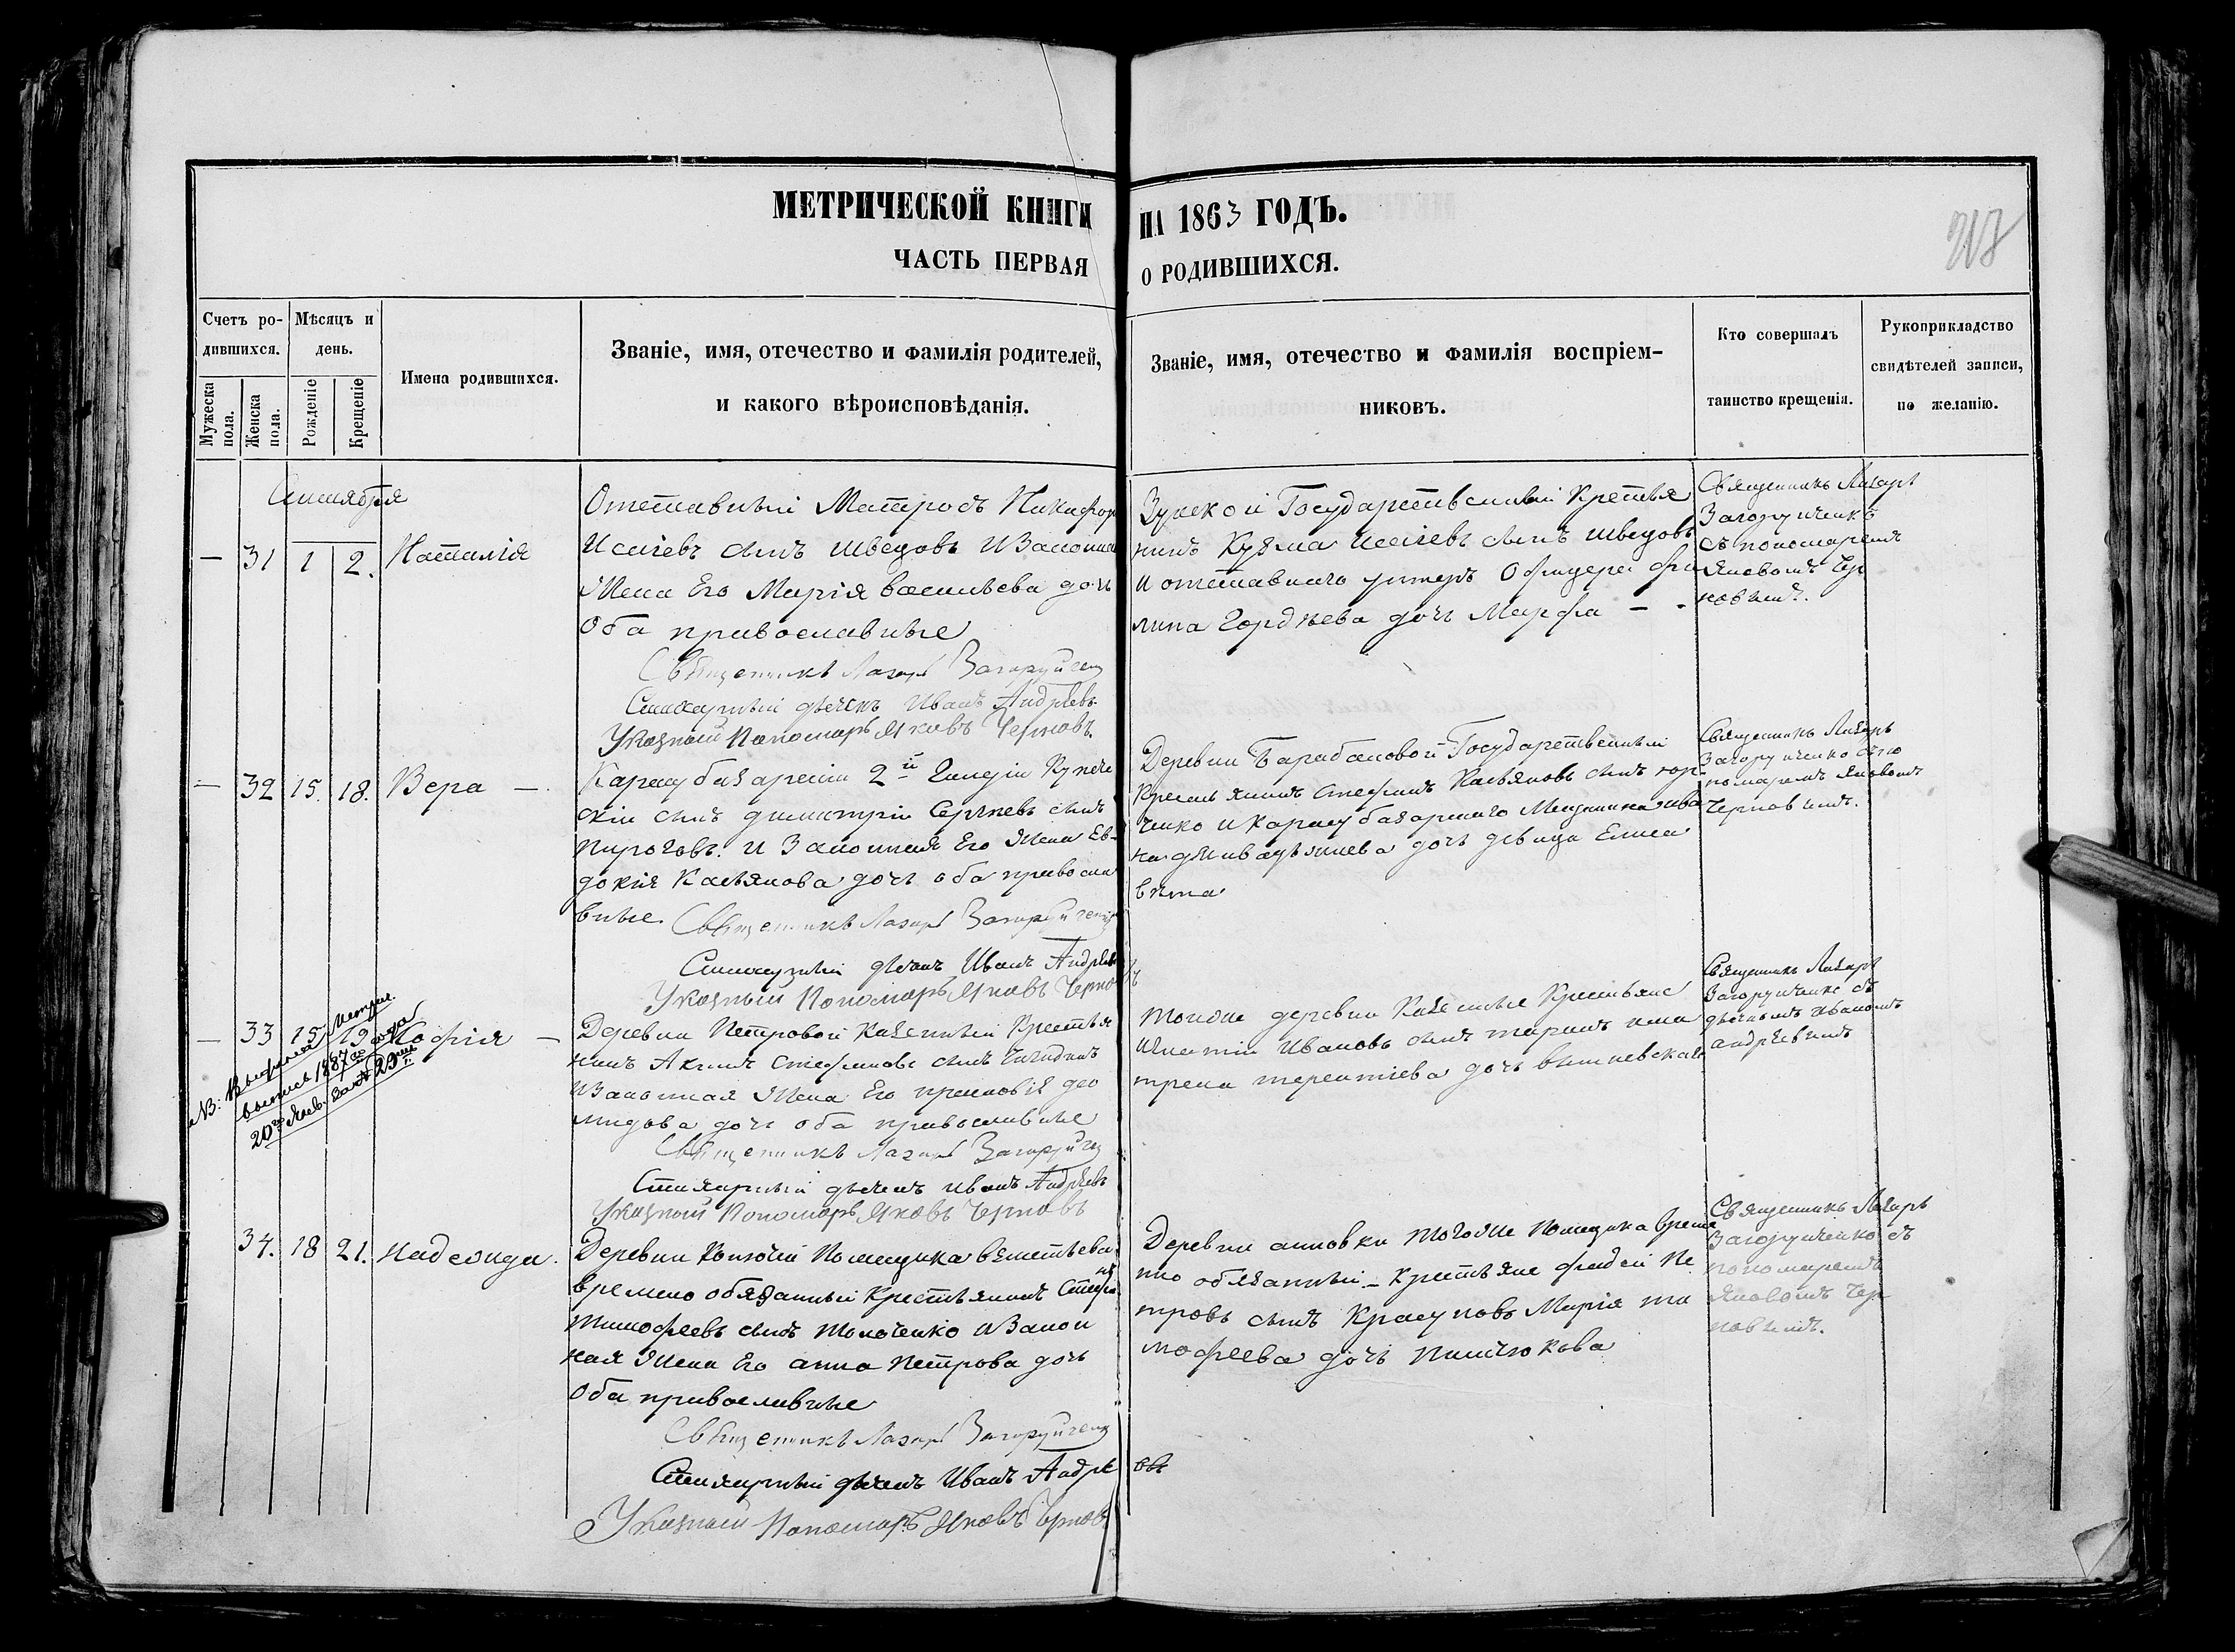 МЕТРИЧЕСКОЙ КНИГИ НА 1863 ГОДЪ.
ЧАСТЬ ПЕРВАЯ О РОДИВШИХСЯ.
Счетъ ро-
дившихся.
Мужеска
пола.
Женска
пола.
Мѣсяцъ и
день.
Рожденіе
Крещеніе
Имена родившихся.
Званіе, имя, отечество и фамилія родителей,
и какого вѣроисповѣданія.
Званіе, имя, отечество и фамилія воспріем-
никовъ.
Кто совершалъ
таинство крещенія.
Рукоприкладство
свидѣтелей записи,
по желанію.
— 31 1 2. Наталія
Отставный Матросъ Никифор
Исаіевъ сынъ Швецовъ и Законна
Жена Его Марія васильева дочь
Оба православные
Священникъ Лазарь
Стихарный дьячекъ Иванъ Андрѣевъ
Указный Пономарь Яковъ Черновъ.
Зуйской Государственный Крестья
нинъ Кузма Исаіевъ сынъ швецовъ
и отставнаго унтеръ Офицера фи
липа Гордѣева дочь Марфа —
Священникъ Лазарь
съ пономаремъ
Яковомъ Чер
новымъ.
— 32 15. 18. Вера —
Карасубазарскій 2й Гилдіи Купече
скій сынъ димитрій Сергѣевъ сынъ
Пироговъ. и Законная Его Жена Ев-
докія Касьянова дочь оба правосла
вные. Священникъ Лазарь
Стихарный дьячекъ Иванъ Андрѣевъ
Указный Пономарь Яковъ Черновъ
Деревни Барабановой Государственный
Крестьянинъ Стефанъ Касьяновъ сынъ
ченко и Карасубазарскаго Мещанина ива
на дочь дѣвица Елиса
вѣта
Священникъ Лазарь
номаремъ Яковомъ
Черновымъ.
— 33 15 19 Софія —
20го Янв. за № 29мъ
Деревни Петровой Казенный Крестья
нинъ Акимъ Стефановъ сынъ
и Законная Жена Его
мидова дочь оба православные
Священникъ Лазарь
Стихарный дьячекъ иванъ Андрѣевъ
Указный Пономарь Яковъ Черновъ
Тойже деревни Казенные Крестьяне
Игнатій Ивановъ сынъ
терентіева дочь
Священникъ Лазарь
съ
дьячкомъ Иваномъ
андрѣевымъ
34. 18 21. Надежда.
Деревни Помещика
временно обязанный Крестьянинъ Стефанъ
Тимофеевъ сынъ Толоченко и Закон
ная Жена Его анна Петрова дочь
Оба православные
Священникъ Лазарь
Стихарный дьячекъ Иванъ Андрѣевъ
Указный Пономарь Яковъ Черновъ
Деревни анновки тогоже Помещика време
нно обязанный Крестьяне фадей Пе
тровъ сынъ Красуповъ Марія ти
мофеева дочь
Священникъ Лазарь
съ
пономаремъ
Яковомъ Чер
новымъ.